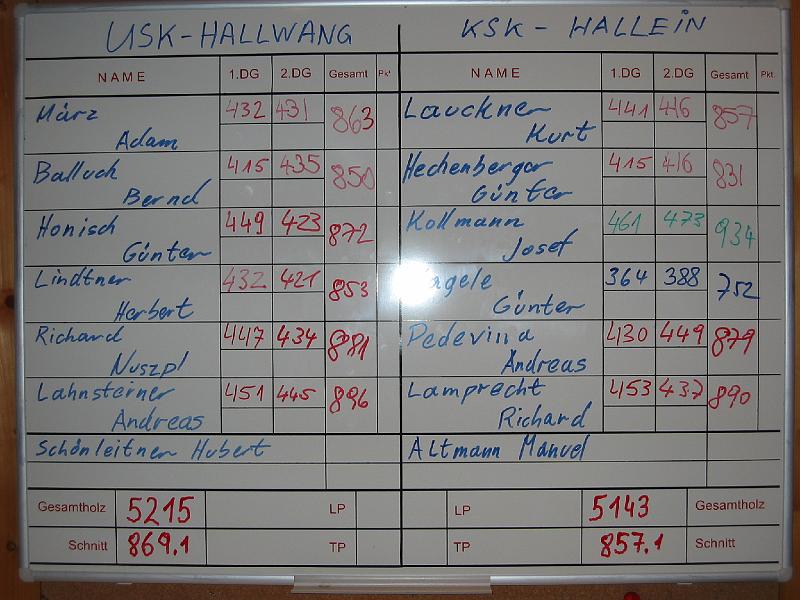 USK-HALLWANG KSK-HALLEIN
NAME 1.DG 2.DG Gesamt Pkt NAME 1.DG 2.DG Gesamt Pkt.
März 432 431 863 Lauckner 441 416 857
Adam Kurt
Balluch 415 435 850 Hechenberger 415 416 831
Bernd Günter
Honisch 449 423 872 Kollmann 461 473 934
Günter Josef
Lindtner 432 421 853 364 388 752
Herbert Günter
Richard 447 434 881 430 449 879
Nuszpl Andreas
Lahnsteiner 451 445 896 Lamprecht 453 437 890
Andreas Richard
Schönleitner Hubert Altmann Manuel
Gesamtholz 5215 LP LP 5143 Gesamtholz
Schnitt 869.1 TP TP 857.1 Schnitt